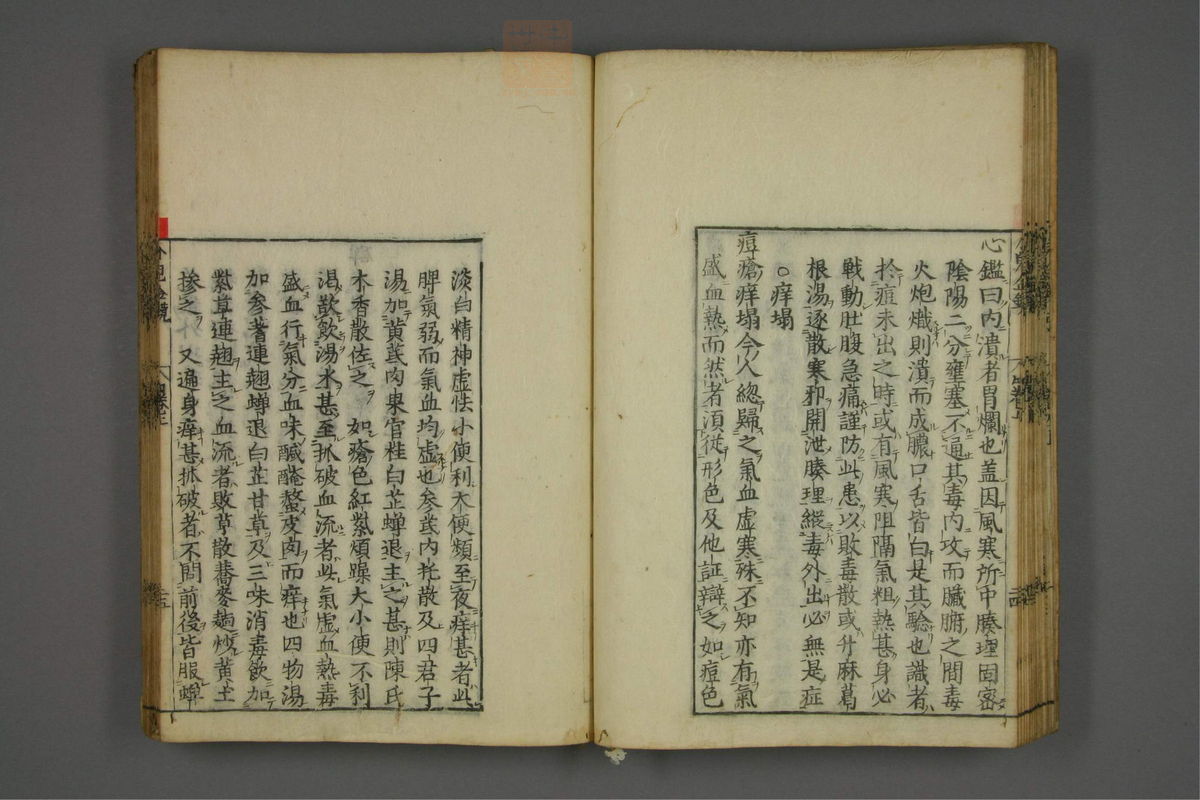 心鑑曰内潰者胃爛也盖因風寒所中腠理固密
陰陽二分壅塞不通其毒内攻而臓腑之間毒
火炮熾則潰而成膿口舌皆白是其驗也識者
於痘未出之時或有風寒阻隔氣粗熱甚身必
戰動肚腹急痛謹防此患以敗毒散或升麻葛
根湯逐散寒邪開泄腠理縱毒外出必無是症
○痒塌
痘瘡痒塌今人緫歸之氣血虚寒殊不知亦有氣
盛血熱而然者須從形色及他証辯之如痘色
淡白精神虚怯小便利大便頻至夜痒甚者此
脾氣弱而氣血均虚也参芪内托散及四君子
湯加黄芪肉果官桂白芷蟬退主之甚則陳氏
木香散佐之 如瘡色紅紫煩躁大小便不利
渇飲湯水甚至抓破血流者此氣虚血熱毒
盛血行氣分血味醎醃螫皮肉而痒也四物湯
加参著連翹蟬退白芷甘草及三味消毒飲加
紫草連翹主之血流者敗草散蕎麥麺炒黄土
摻之 又遍身痒甚抓破者不問前後皆服蟬